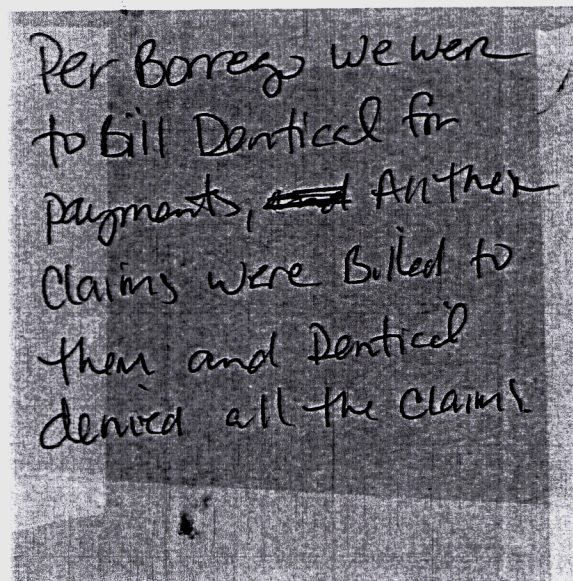 Per Borrego we were
to bill Dentical for
payments, All the
Claims were Billed to
them and Dentical
denied all the Claims